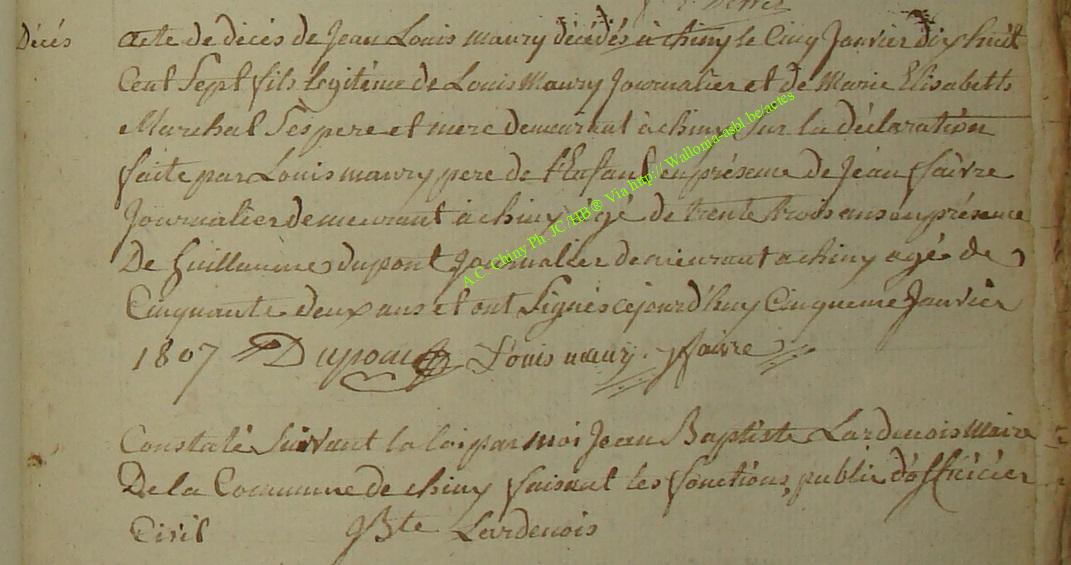 Décès
acte de décès de Jean Louis maury décédés a chiny le Cinq Janvier dix huit
Cent Sept fils legitême de Louis Maury Journalier et de Marie Elisabeth
Marechal Ses pere et mere demeurant à chiny Sur la déclaration
faite par Louis maury pere de l'Enfant en présence de Jean faivre
Journalier demeurant à chiny âgé de trente trois ans en présence
De Guillaume dupont Journalier demeurant a chiny agé de
Cinquante deux ans et ont Signés cejourd'huy Cinqueme Janvier
1807 Dupont Louis maury faivre
A.C-Chiny Ph. JC/HB® Via http://Wallonia-asbl.be/actes
Constaté Suivant la loi par moi Jean Baptiste Lardenois Maire
De la Commune de chiny faisant les fonctions public d'officier
Civil JBte Lardenois